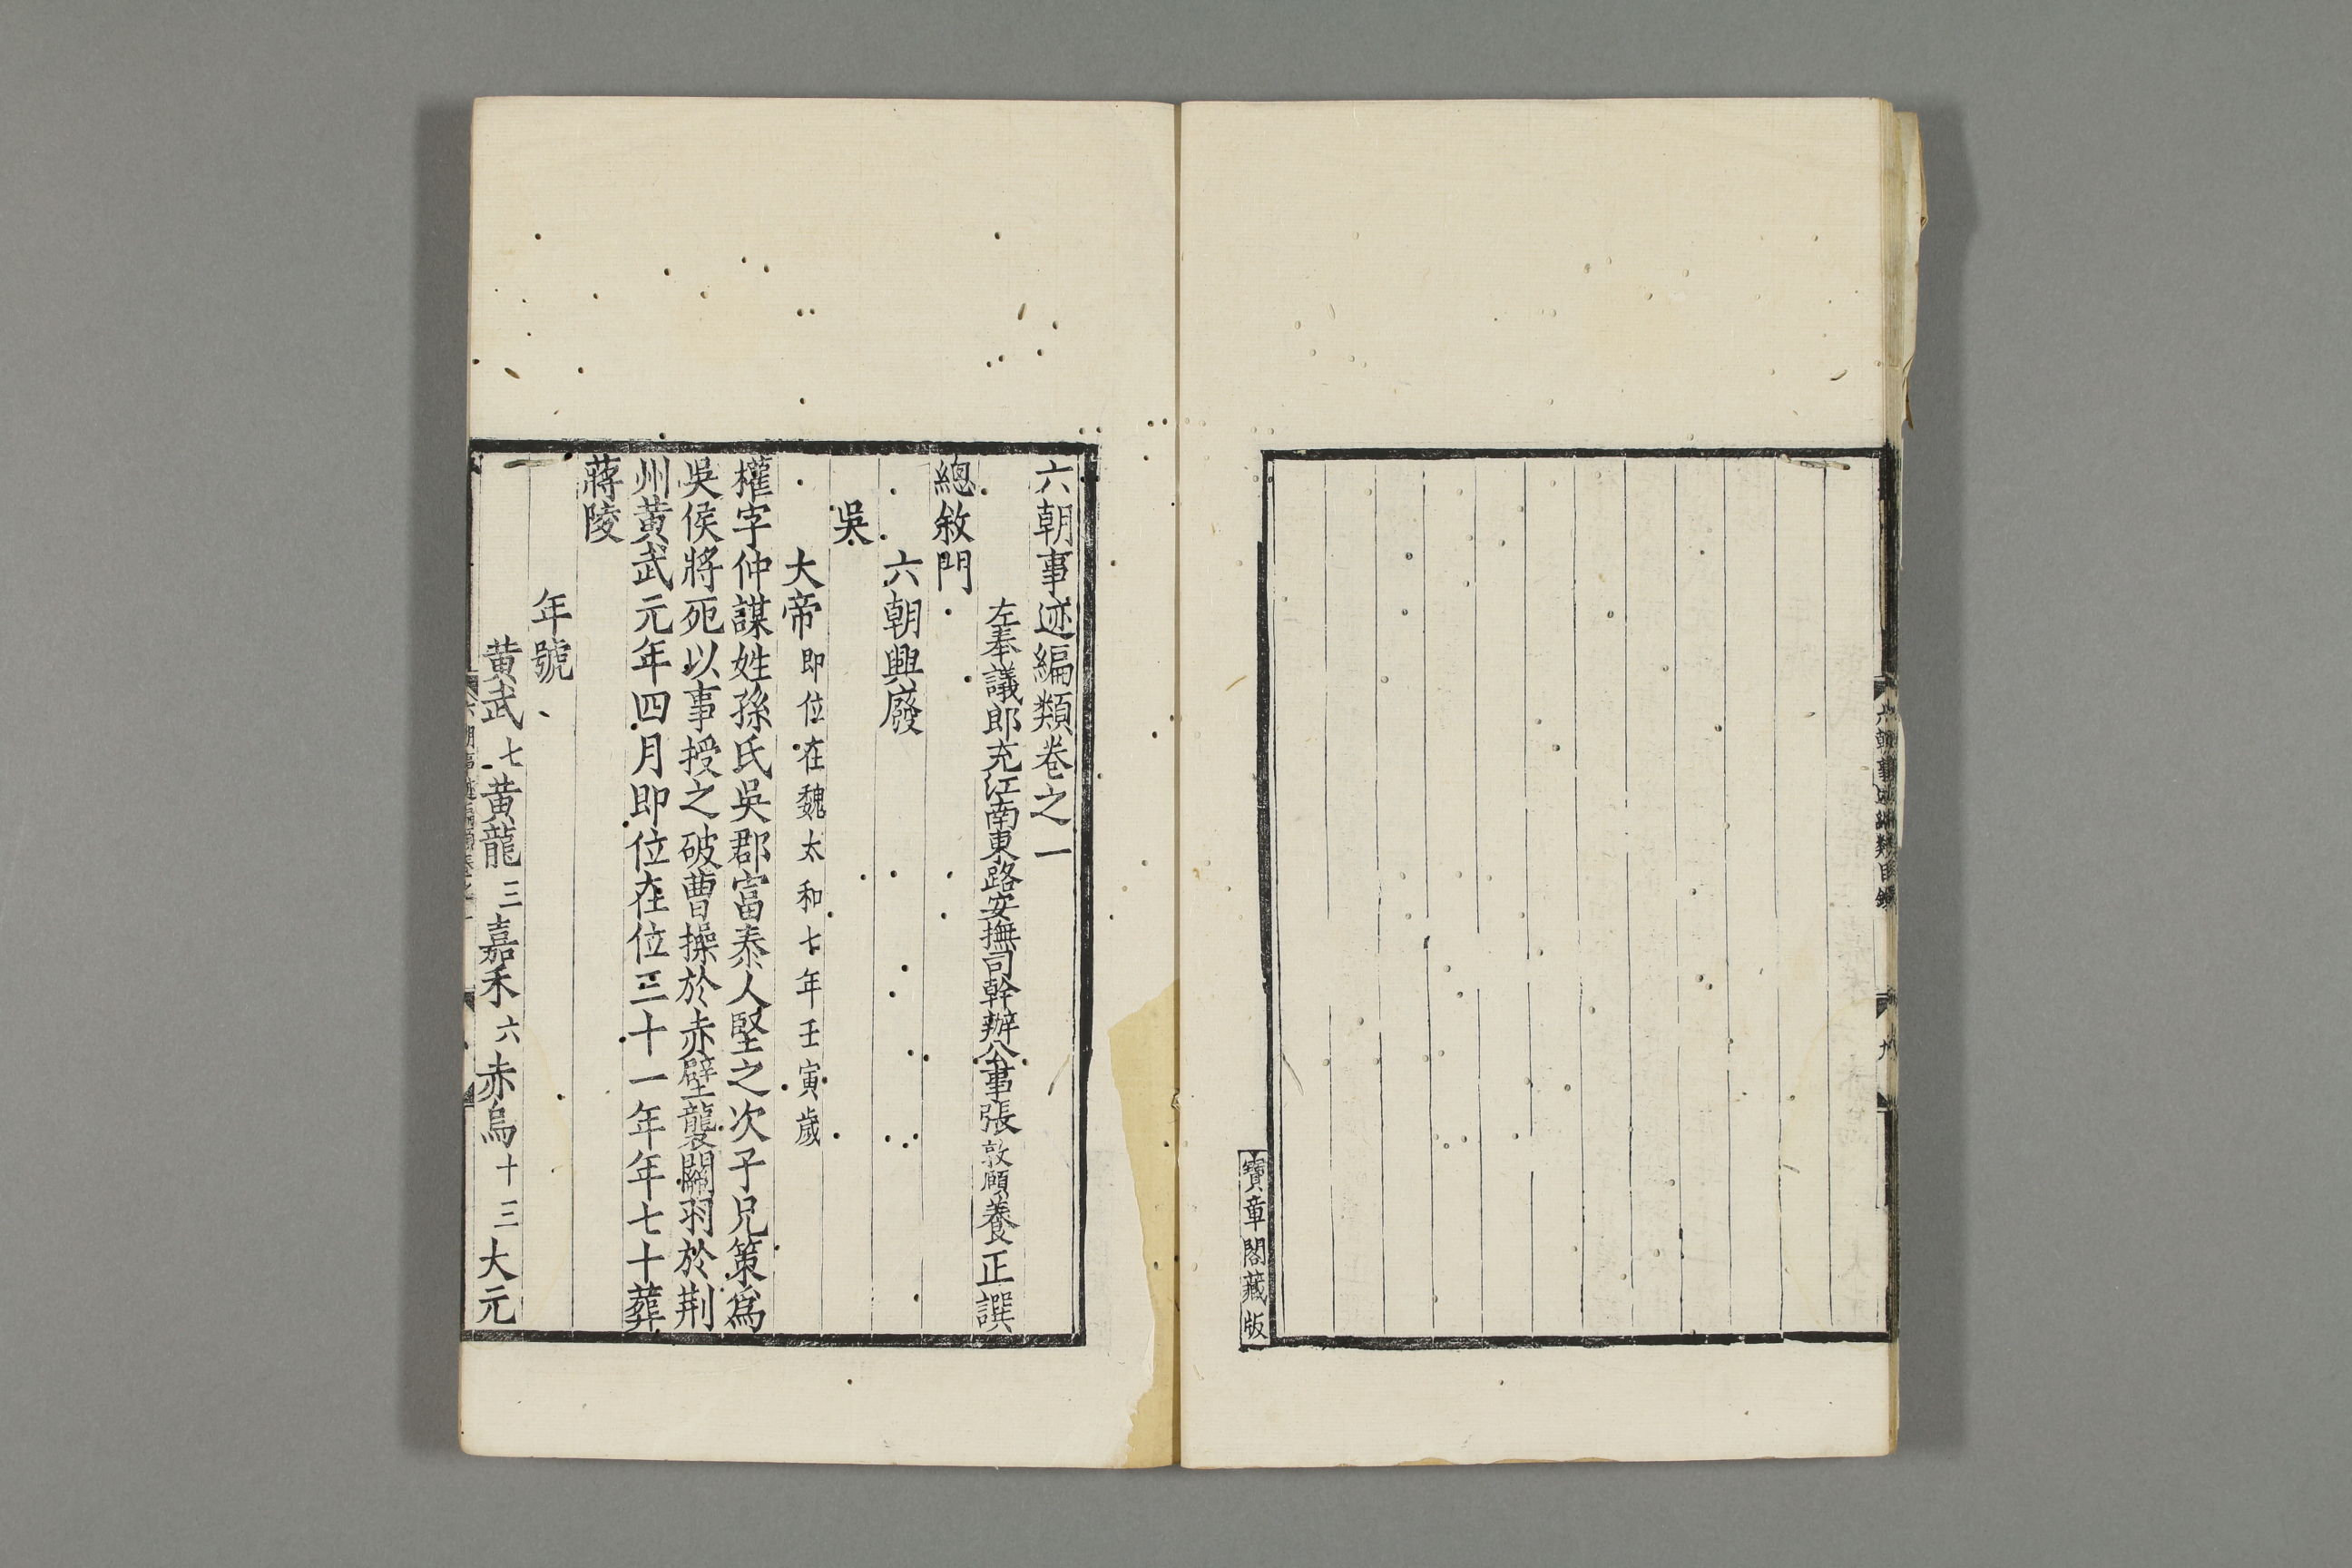 寶章閣藏版
六朝事迹編類卷之一
左奉議郎充江南東路安撫司幹辦公事張敦頤養正譔
總敘門
六朝興廢
吳
大帝即位在魏太和七年壬寅歲
權字仲謀姓孫氏吳郡富春人堅之次子兄策爲
吳侯將死以事授之破曹操於赤壁襲關羽於荆
州黃武元年四月即位在位三十一年年七十葬
蔣陵
年號
黃武七黃龍三嘉禾六赤烏十三大元